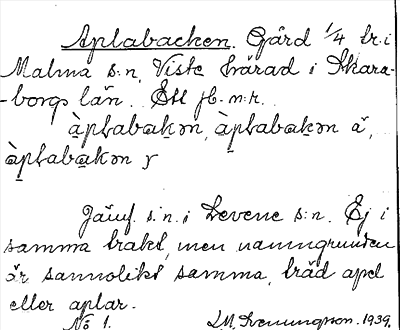 Aplabacken. Gård 1/4 br. i
Malma s:n, Viste härad i Skara-
-borgs län. Ett jb. n:r.
àplabak̬ən, àplabak̬ən å̆,
àplabak̬ən y
Jämf. s. n. i Levene s:n. Ej i
samma trakt, men namngrunden
är sannolikt samma, träd apel
eller aplar.
No 1. Svenungsson. 1939.